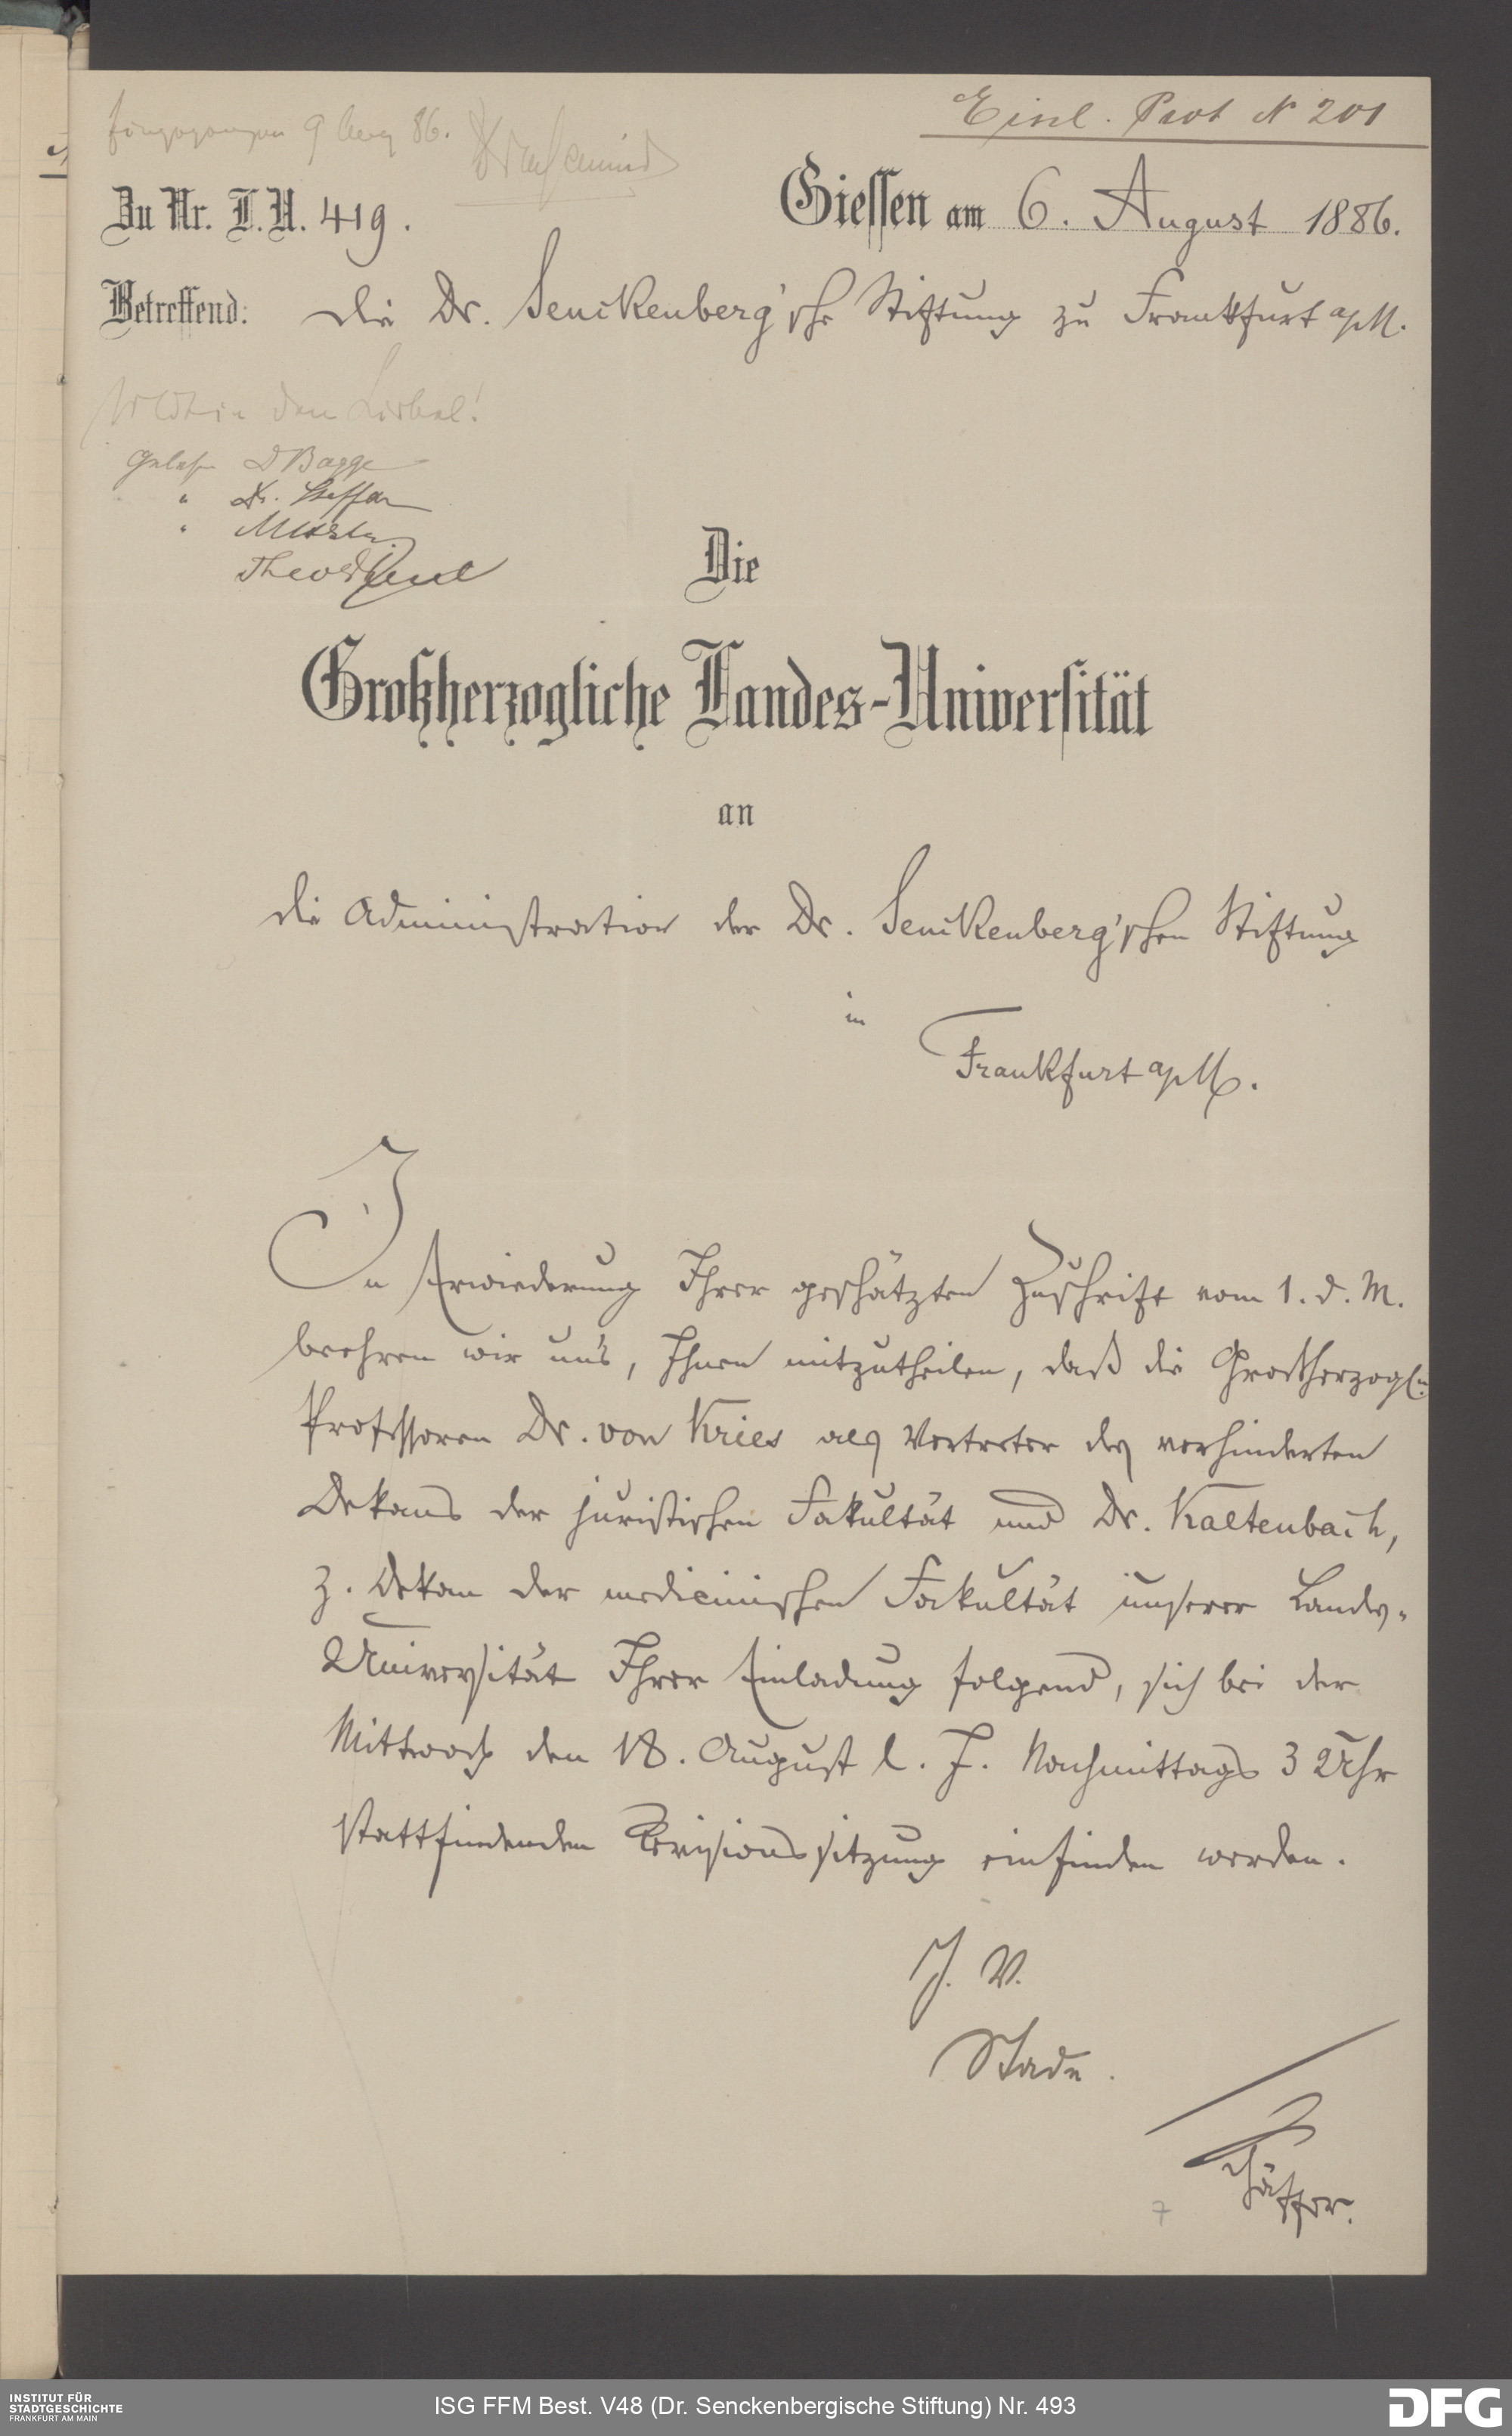 Einl. Prot № 201
Eingegangen 9 Aug 86.
Zu Nr. L.U. 419.
Giessen am 6. August 1886.
Betreffend: die Dr. Senckenberg'sche Stiftung zu Frankfurt a/M.
gelesen D Bagge
" Dr. Steffan
"
Die
Großherzogliche Landes-Universität
an
die Administration der Dr. Senckenberg'schen Stiftung
in
Frankfurt a/M.
In Erwiederung Ihrer geschätzten Zuschrift vom 1. d. M.
beehren wir uns, Ihnen mitzutheilen, daß die Großherzogl.
Professoren Dr. von Kries als Vertreter des verhinderten
Dekans der juristischen Fakultät und Dr. Kaltenbach,
z. Dekan der medicinischen Fakultät unserer Landes-
Universität Ihrer Einladung folgend, sich bei der
Mittwoch den 18. August l. J. Nachmittags 3 Uhr
stattfindenden Revisionssitzung einfinden werden.
J. V.
Stade.
Schäffer.
7
INSTITUT FÜR
STADTGESCHICHTE
FRANKFURT AM MAIN
ISG FFM Best. V48 (Dr. Senckenbergische Stiftung) Nr. 493
DFG